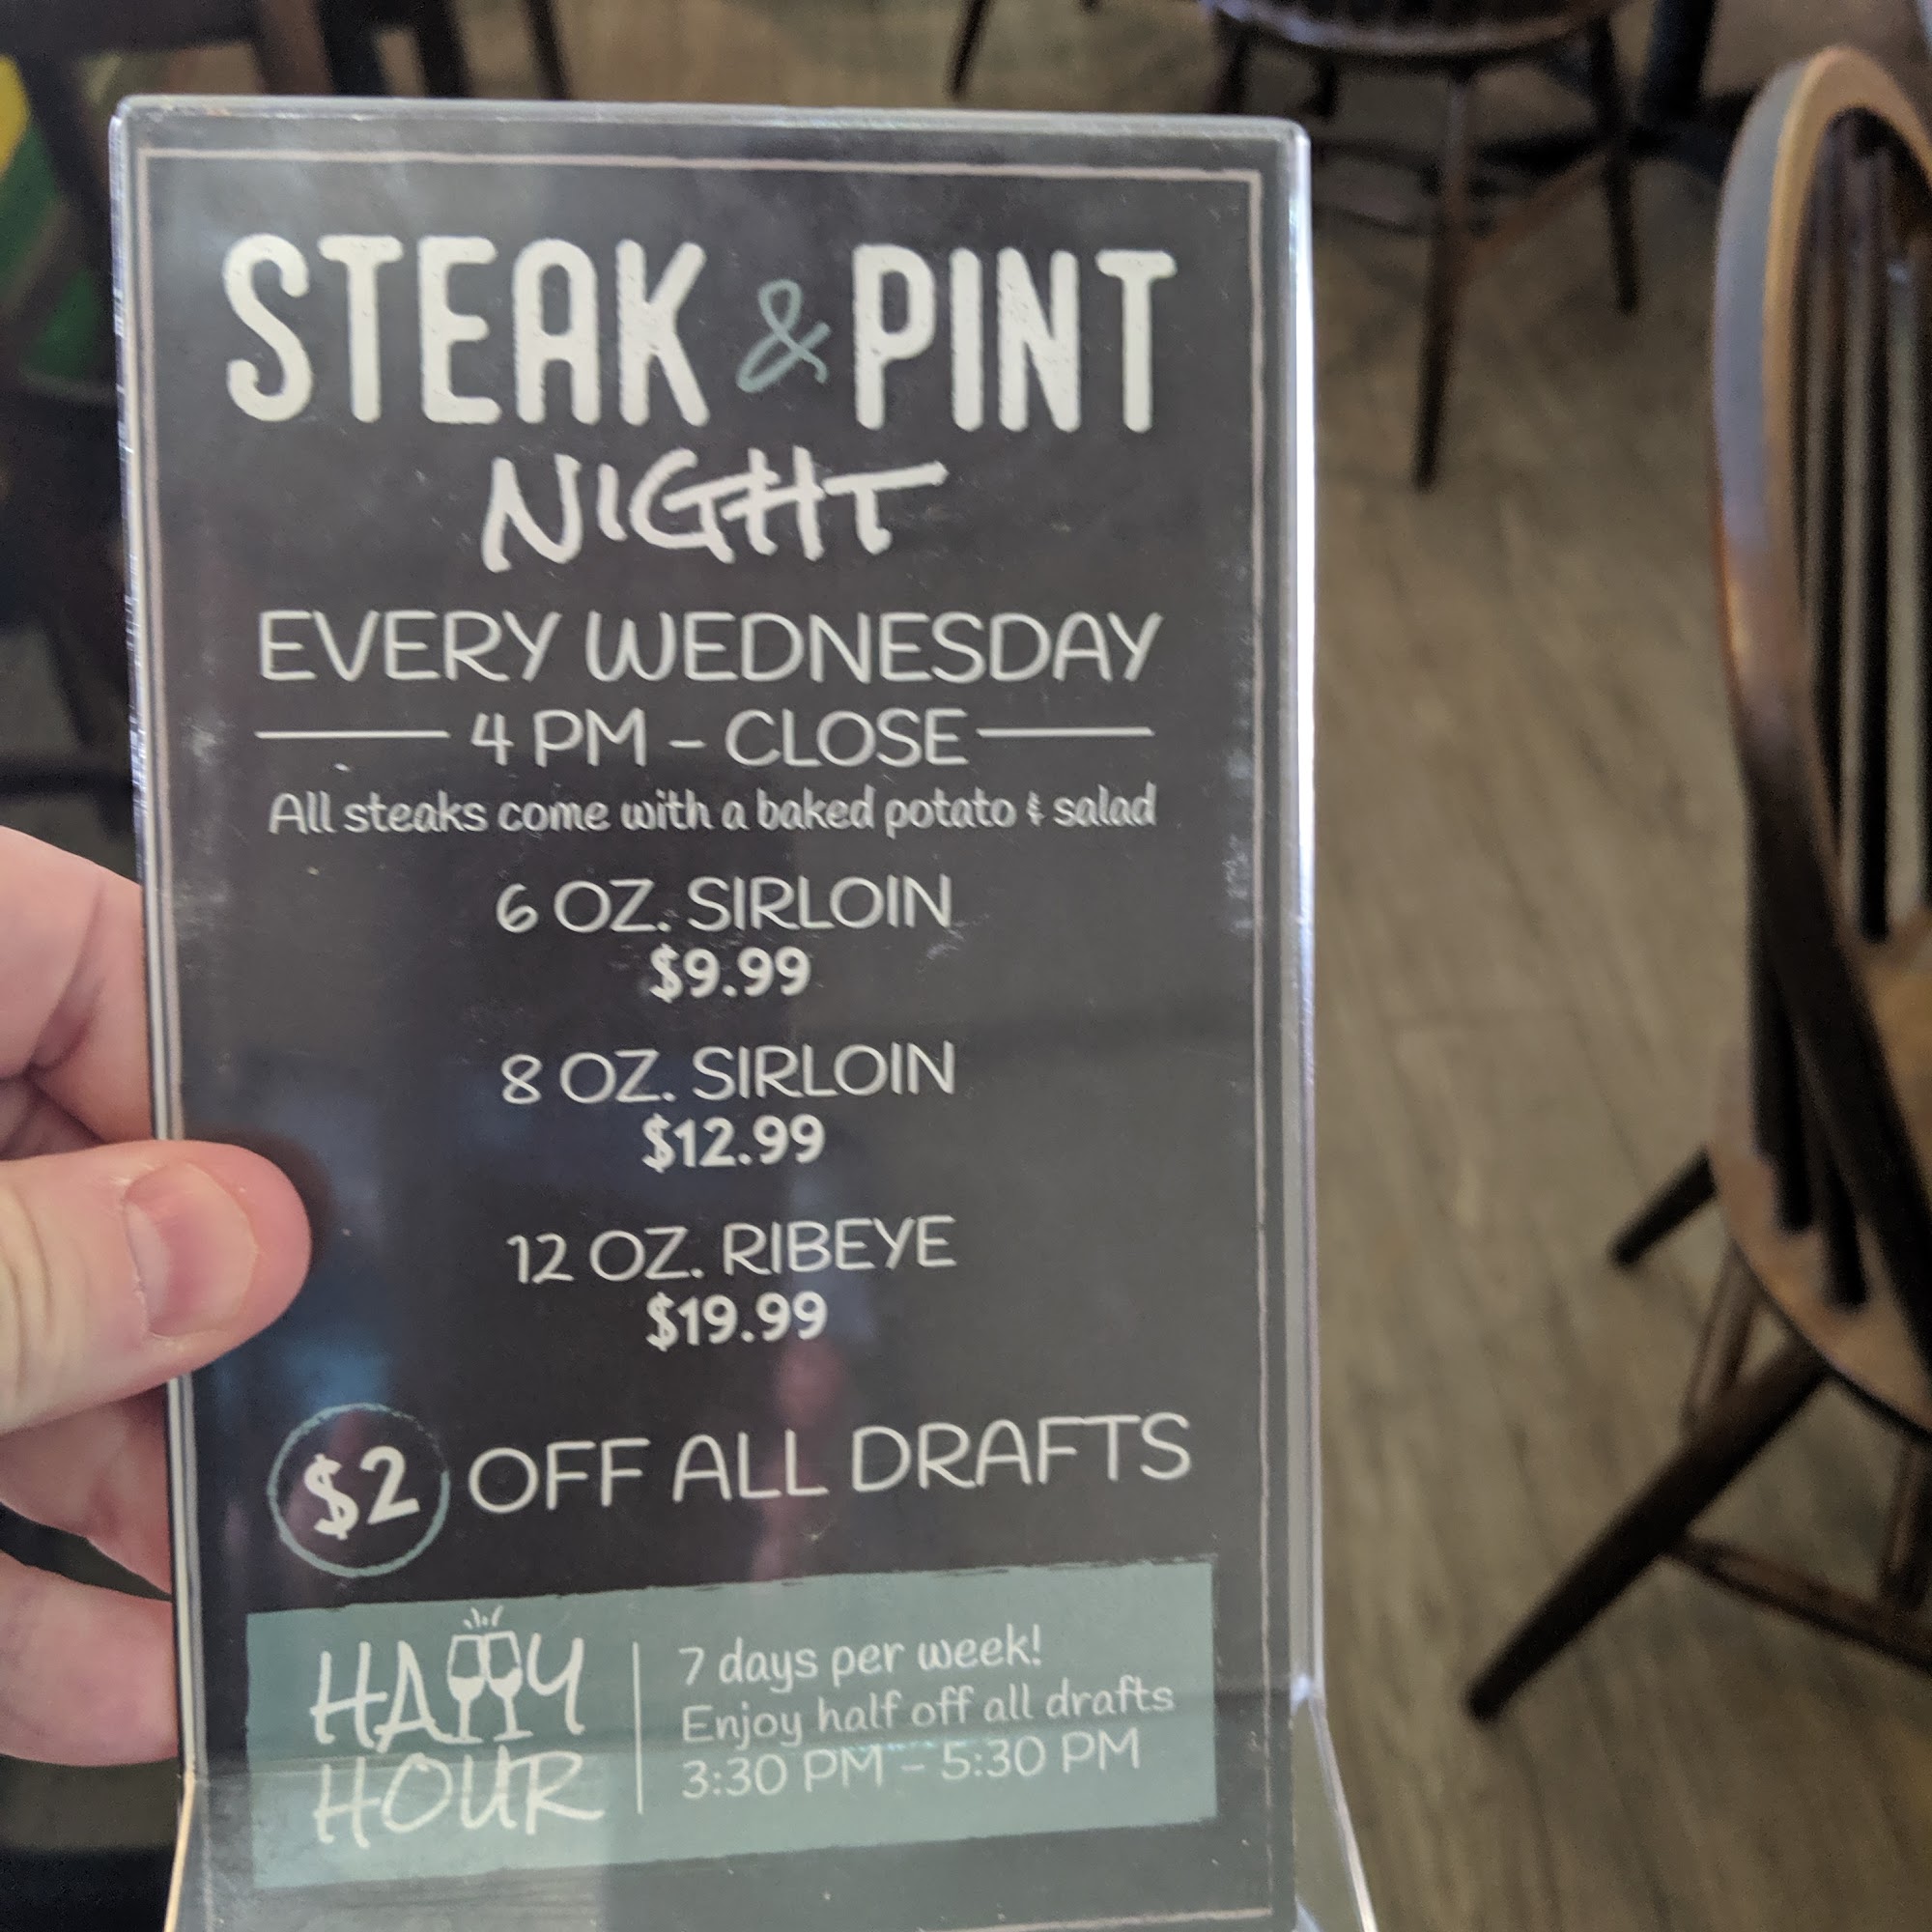 STEAK & PINT
NIGHT
EVERY WEDNESDAY
4 PM - CLOSE
All steaks come with a baked potato & salad
6 OZ. SIRLOIN
$9.99
8 OZ. SIRLOIN
$12.99
12 OZ. RIBEYE
$19.99
$2 OFF ALL DRAFTS
HAPPY
HOUR
7 days per week!
Enjoy half off all drafts
3:30 PM - 5:30 PM